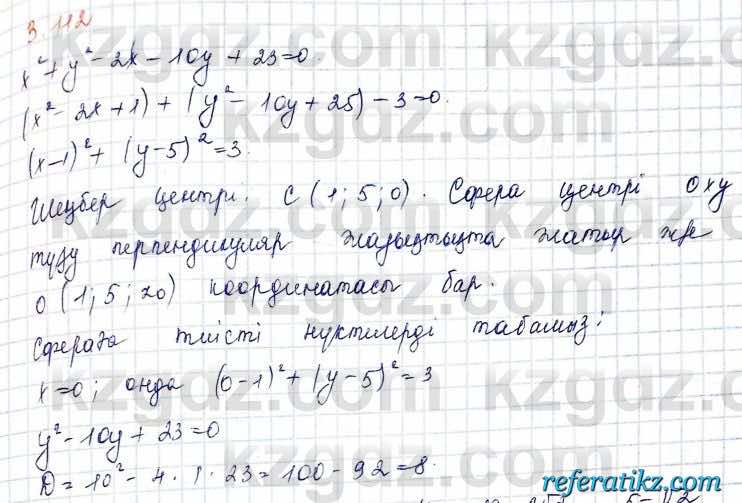 3.112
x² + y² - 2x - 10y + 23 = 0.
(x² - 2x + 1) + (y² - 10y + 25) - 3 = 0.
(x-1)² + (y-5)² = 3.
Шеңбер центрі. C (1; 5; 0). Сфера центрі Oxy
түзу перпендикуляр жазықтықта жатыр және
O (1; 5; z0) координатасы бар.
Сфераға тиісті нүктелерді табамыз:
x = 0; онда (0-1)² + (y-5)² = 3
y² - 10y + 23 = 0
D = 10² - 4 · 1 · 23 = 100 - 92 = 8.
kzgdz.com
referatikz.com